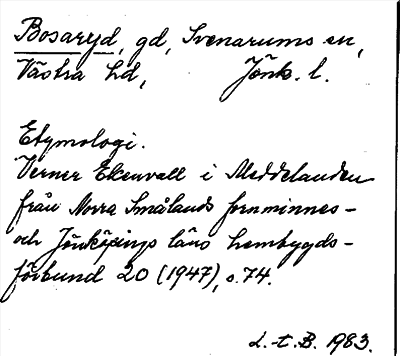 Bosaryd, gd, Svenarums sn,
Västra hd, Jönk. l.
Etymologi.
Verner Ekenvall i Meddelanden
från Norra Smålands fornminnes-
och Jönköpings läns hembygds-
förbund 20 (1947), s. 74.
L.-t. B. 1983.